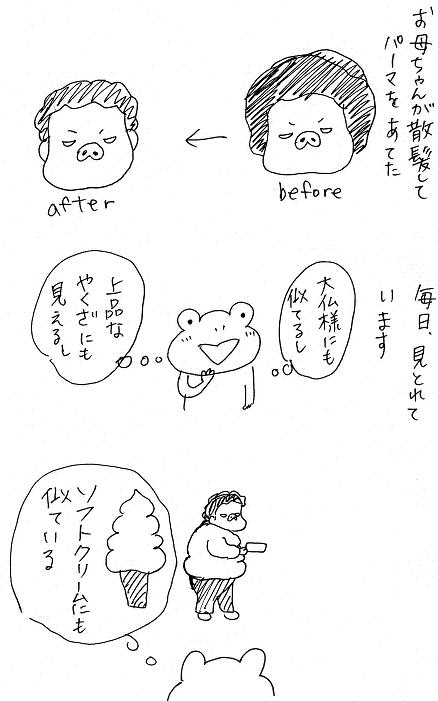 お母ちゃんが散髪して
パーマをあてた
before
after
毎日、見とれて
います
大仏様にも
似てるし
上品な
やくざにも
見えるし
ソフトクリームにも
似ている